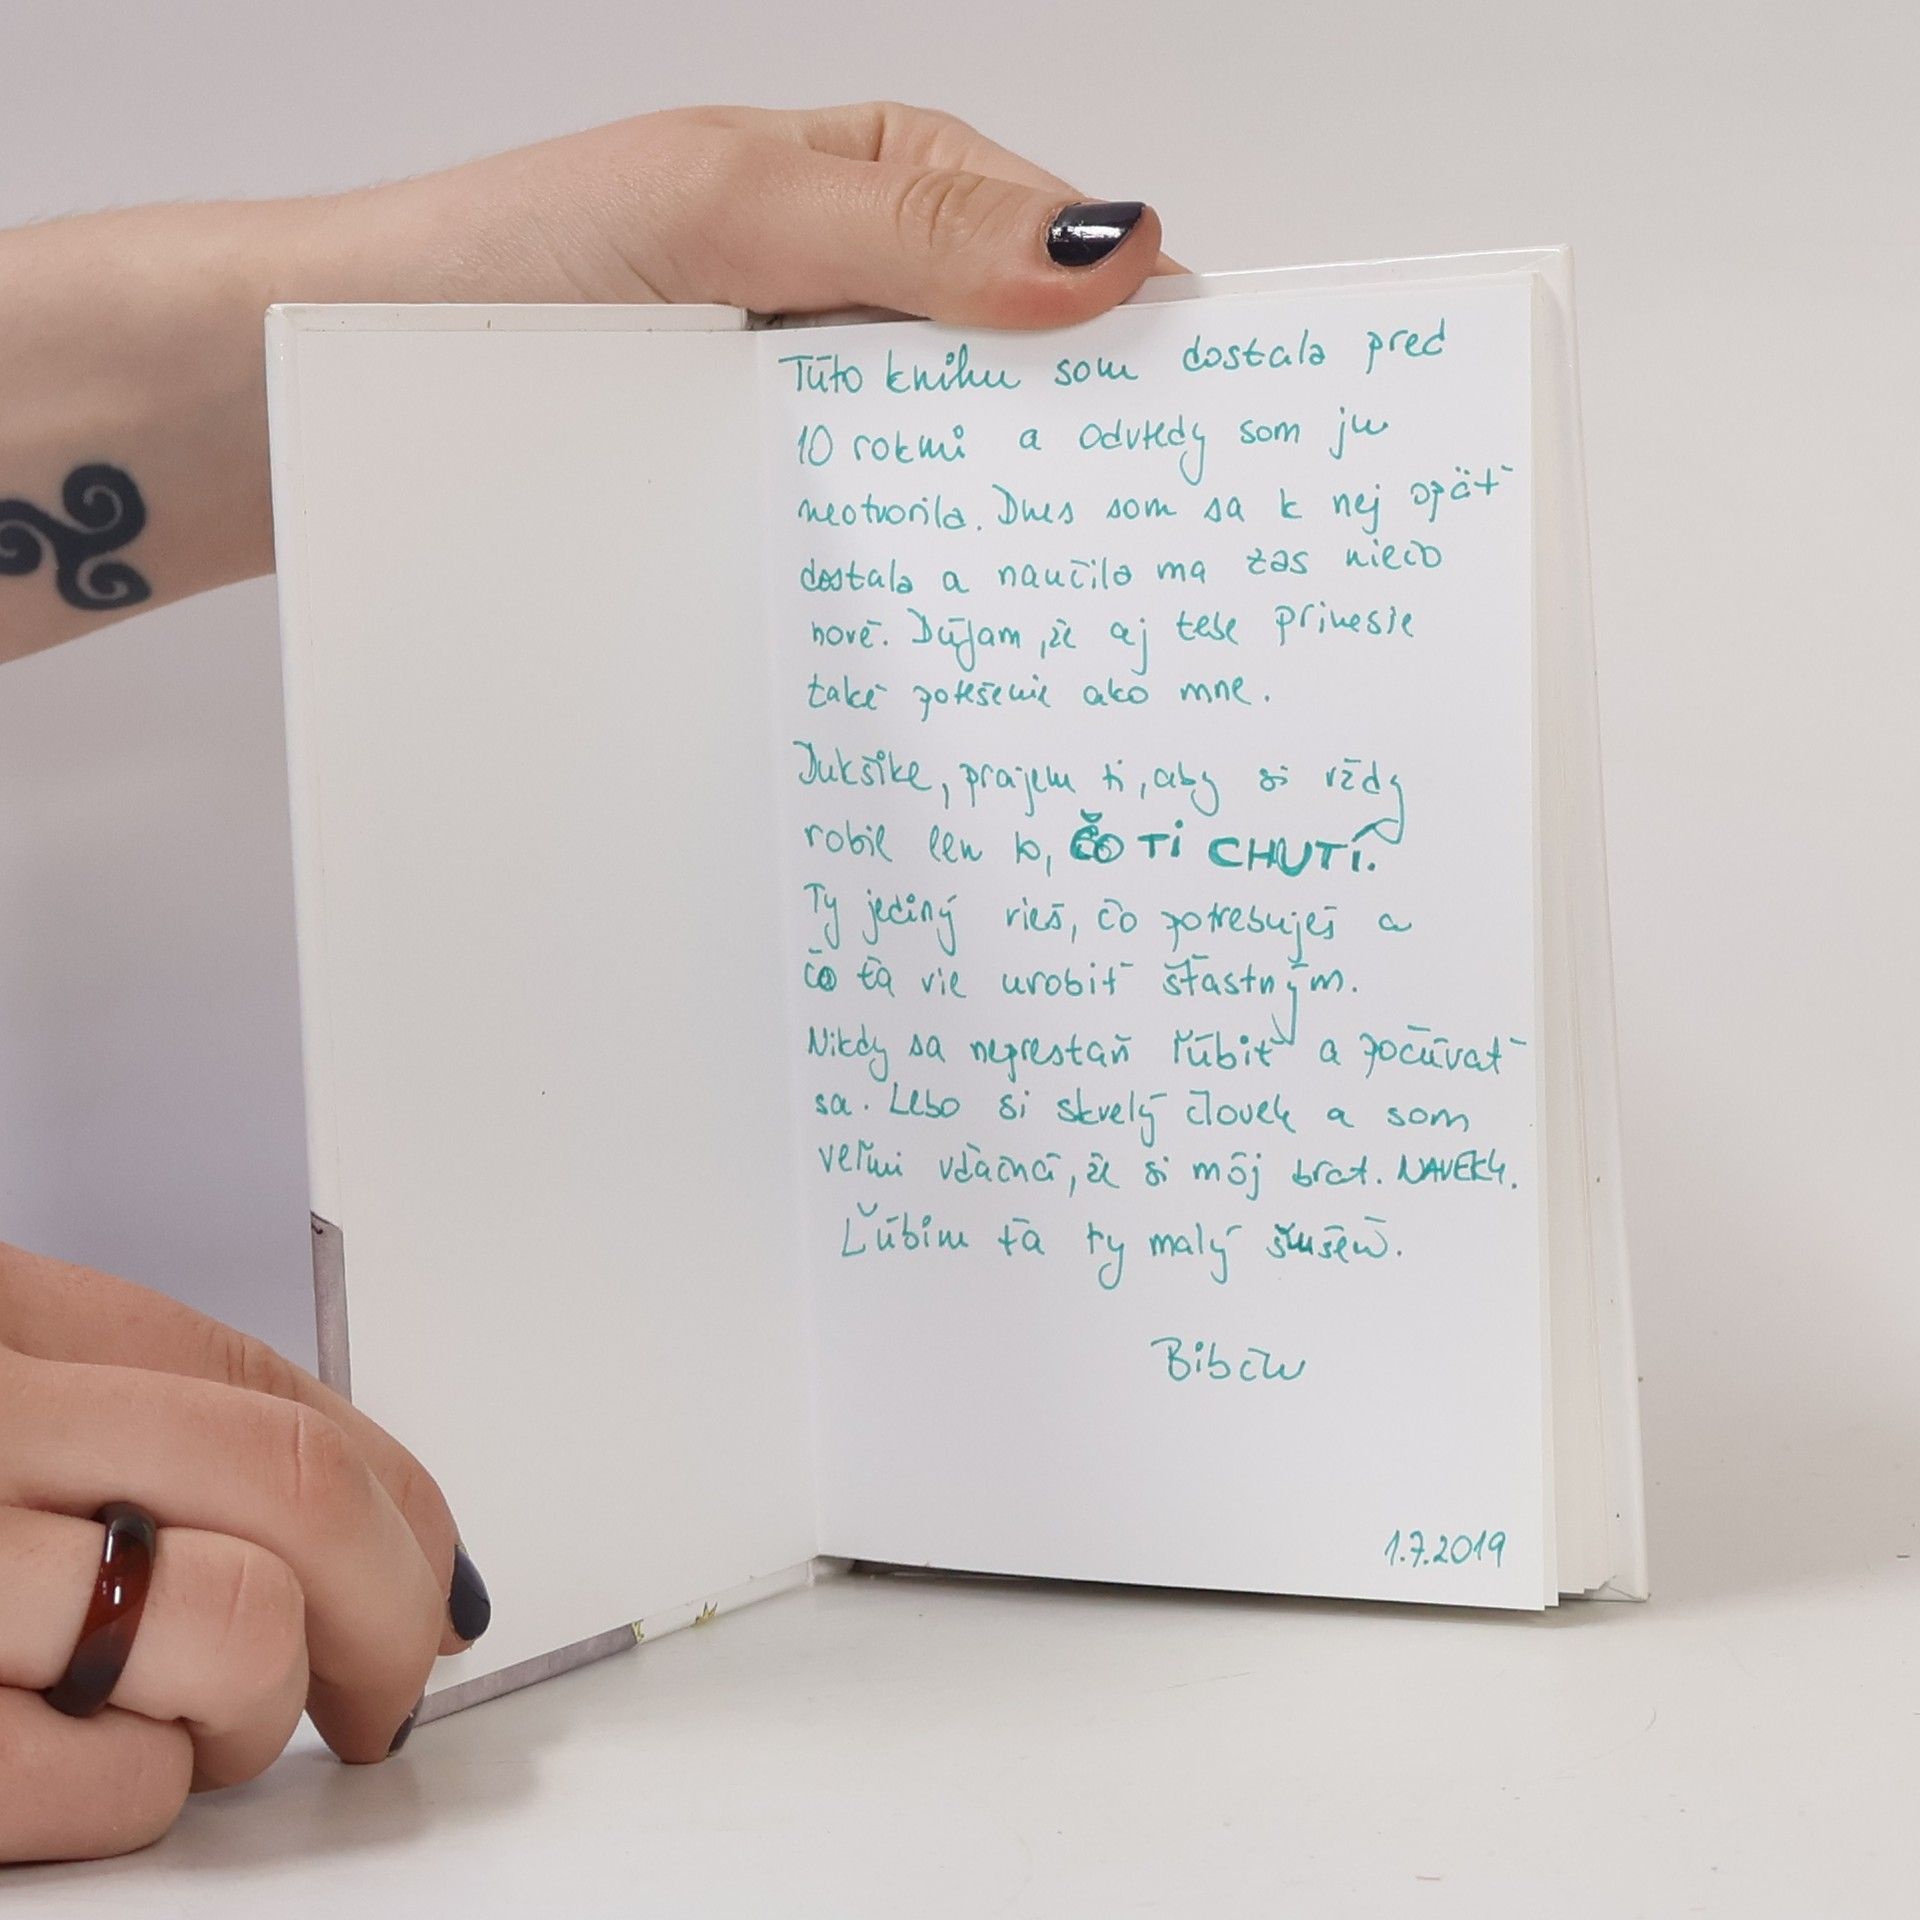 Túto knihu som dostala pred
10 rokmi a odvtedy som ju
neotvorila. Dnes som sa k nej opäť
dostala a naučila ma zas niečo
nové. Dúfam, že aj tebe prinesie
také potešenie ako mne.
Dukšíke, prajem ti, aby si vždy
robil len to, ČO TI CHUTÍ.
Ty jediný vieš, čo potrebuješ a
čo ťa vie urobiť šťastným.
Nikdy sa neprestaň ľúbiť a počúvať
sa. Lebo si skvelý človek a som
veľmi vďačná, že si môj brat. NAVEKY.
Ľúbim ťa ty malý
1.7.2019